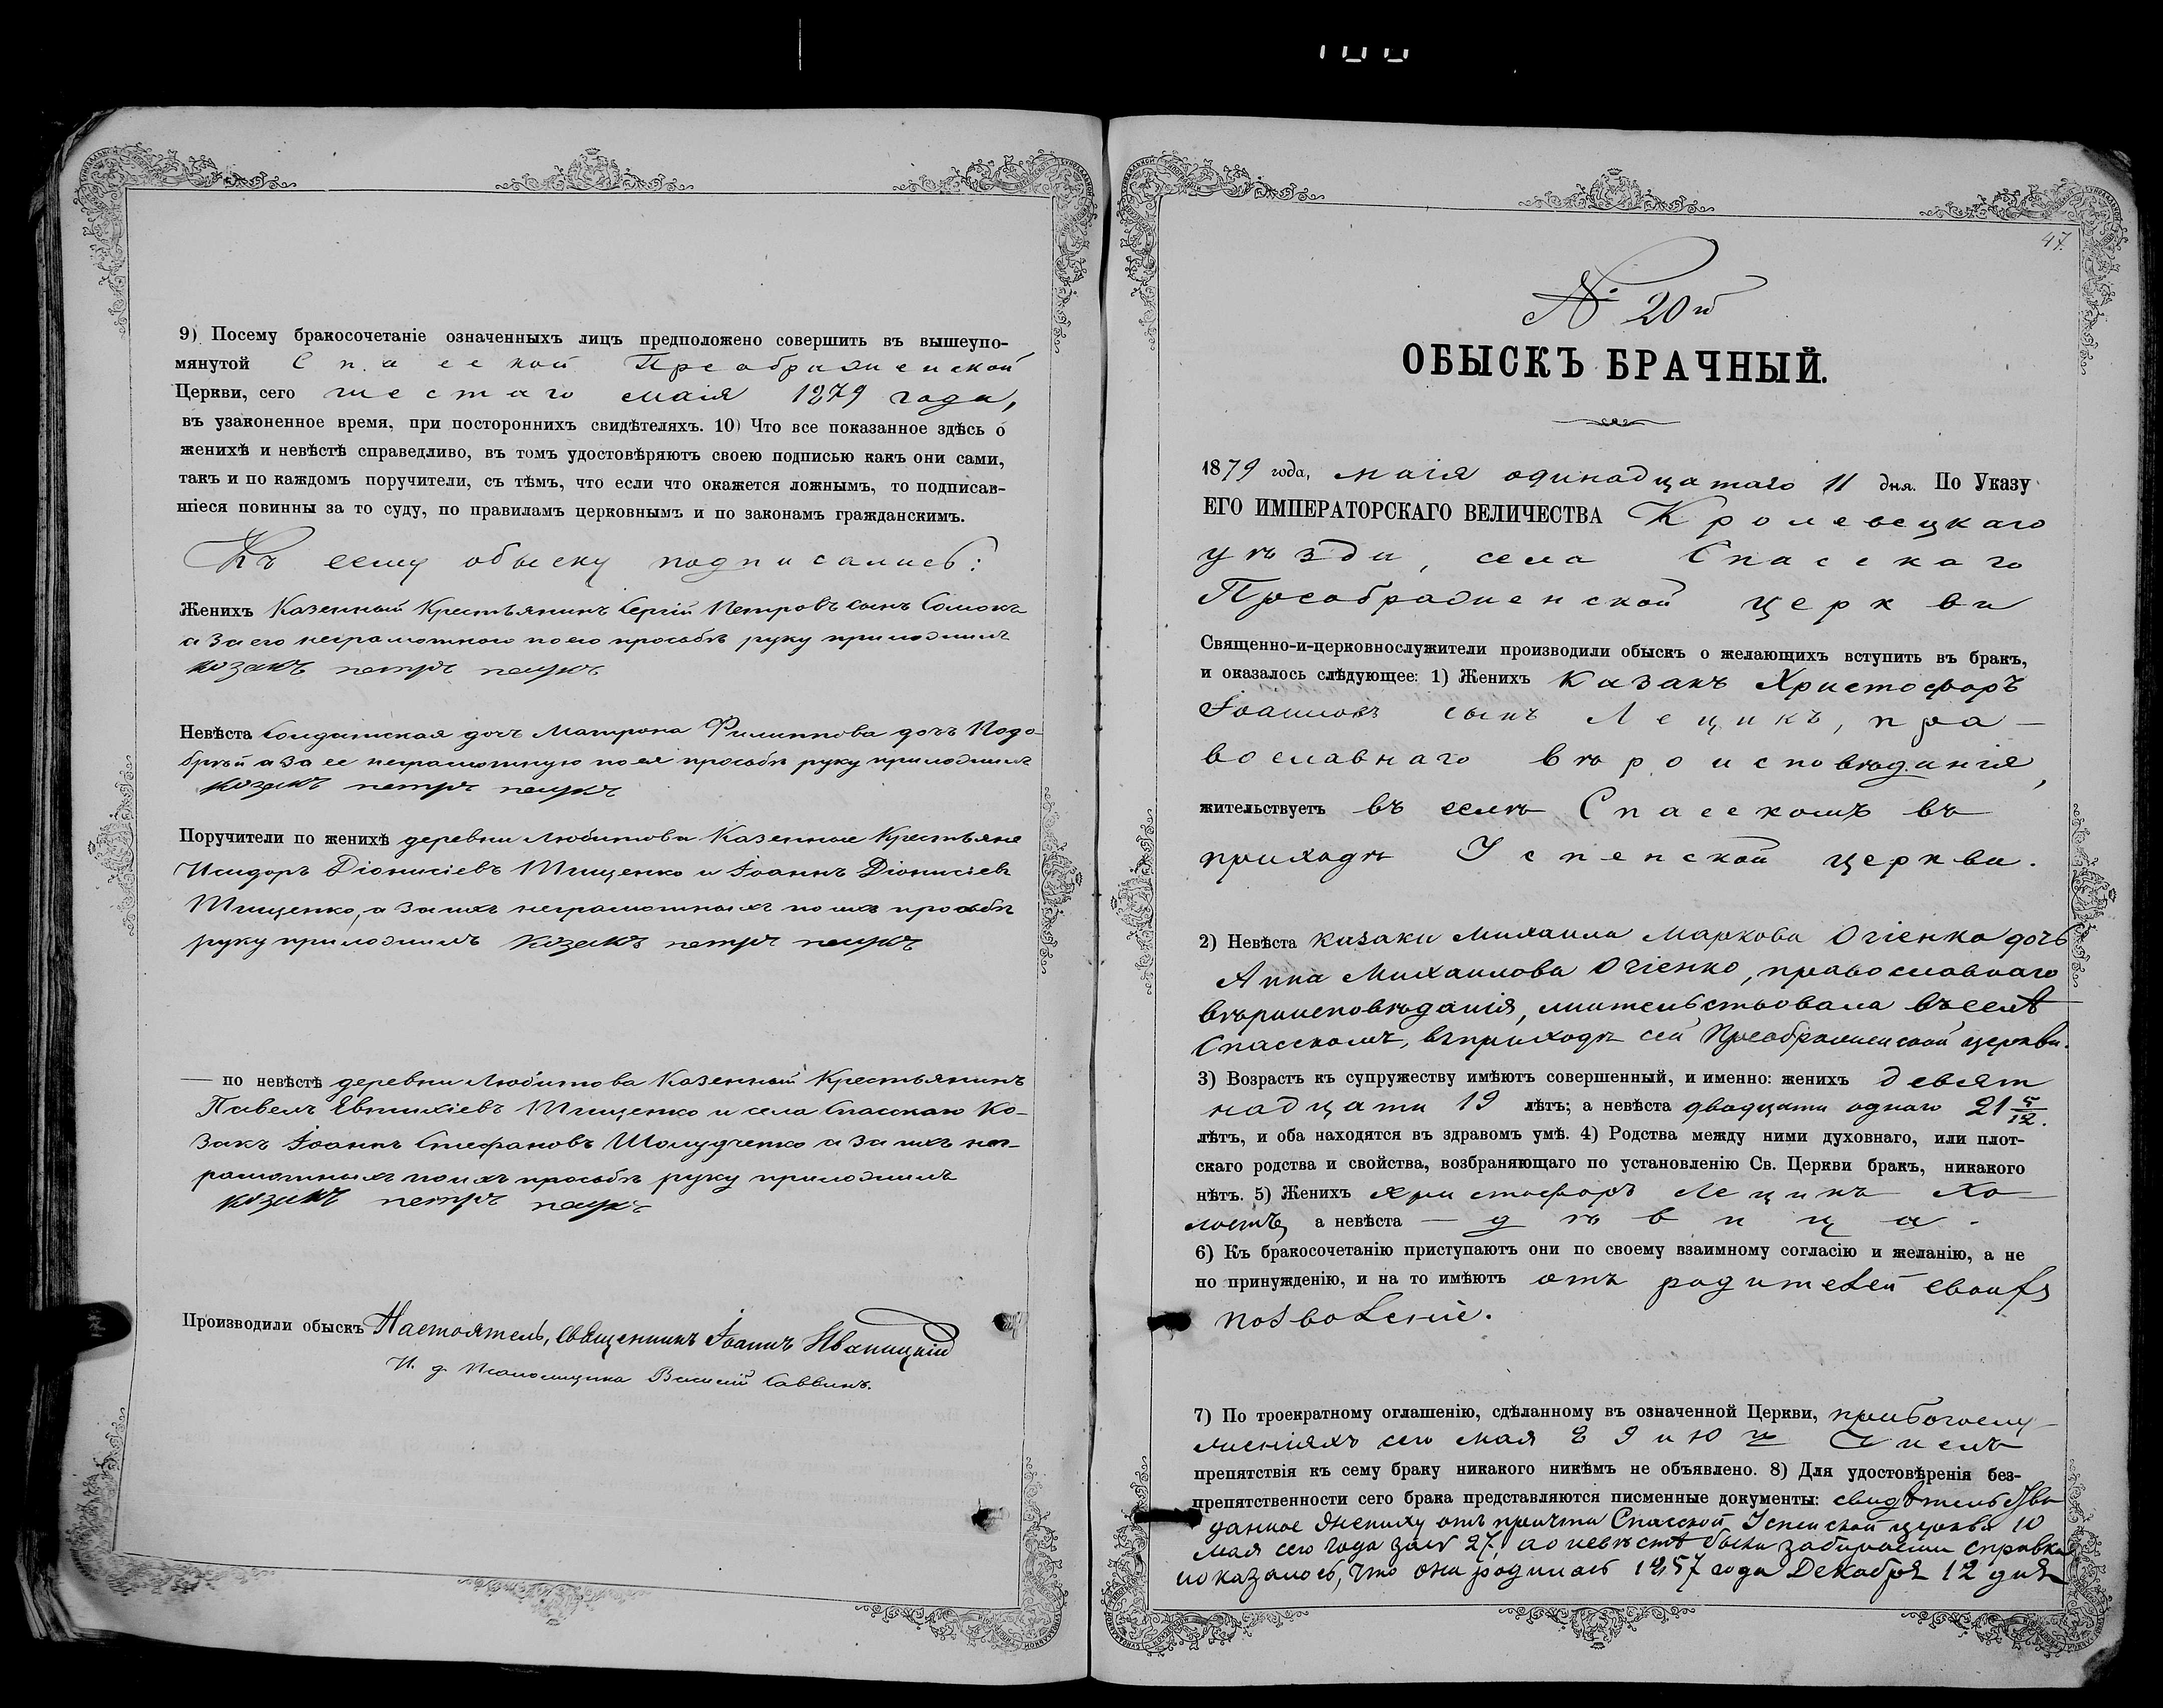 9) Посему бракосочетаніе означенныхъ лицъ предположено совершить въ вышеупо-
мянутой Спасской Преображенской
Церкви, сего шестаго маія 1879 года,
въ узаконенное время, при постороннихъ свидѣтеляхъ. 10) Что все показанное здѣсь о
женихѣ и невѣстѣ справедливо, въ томъ удостовѣряютъ своею подписью какъ они сами,
такъ и по каждомъ поручители, съ тѣмъ, что если что окажется ложнымъ, то подписав-
шіеся повинны за то суду, по правиламъ церковнымъ и по законамъ гражданскимъ.
Къ сему обыску подписались:
Женихъ Казенный Крестьянинъ Сергій Петровъ сынъ
а за его неграмотного по его прозьбѣ руку приложилъ
козакъ петръ паукъ
Невѣста Солдатская дочь Матрона Филиппова дочь Подо-
брѣй а за ее неграмотную по ея прозьбѣ руку приложилъ
козакъ петръ паукъ
Поручители по женихѣ деревни Любитова Казенные Крестьяне
Исидоръ Діонисіевъ Тищенко и Іоаннъ Діонисіевъ
Тищенко, а за ихъ неграмотныхъ по ихъ прозьбѣ
руку приложилъ козакъ петръ паукъ
— по невѣстѣ деревни Любитова Казенный Крестьянинъ
Павелъ Евтихіевъ Тищенко и села Спасскаго Ко-
закъ Іоаннъ Стефановъ Шолудченко а за ихъ нег-
рамотныхъ по ихъ прозьбѣ руку приложилъ
козакъ петръ паукъ
Производили обыскъ Настоятель, священникъ Іоаннъ Иваницкій
И. д. Псаломщика Василій Саввинъ.
47.
№ 20й
ОБЫСКЪ БРАЧНЫЙ.
1879 года, маія одинадцатаго 11 дня. По Указу
ЕГО ИМПЕРАТОРСКАГО ВЕЛИЧЕСТВА Кролевецкаго
уѣзда, села Спасскаго
Преображенской церкви
Священно-и-церковнослужители производили обыскъ о желающихъ вступить въ бракъ,
и оказалось слѣдующее: 1) Женихъ казакъ Христофоръ
Іоанновъ сынъ Лещикъ, пра-
вославнаго вѣроисповѣданія,
жительствуетъ въ селѣ Спасскомъ въ
приходѣ Успенской церкви.
2) Невѣста казака Михаила Маркова Огіенка дочь
Анна Михаилова Огіенко, православнаго
вѣроисповѣданія, жительствовала въ селѣ
Спасскомъ, въ приходѣ сей Преображенской церкви.
3) Возрастъ къ супружеству имѣютъ совершенный, и именно: женихъ девят
надцати 19 лѣтъ; а невѣста двадцати одного 21 5/12.
лѣтъ, и оба находятся въ здравомъ умѣ. 4) Родства между ними духовнаго, или плот-
скаго родства и свойства, возбраняющаго по установленію Св. Церкви бракъ, никакого
нѣтъ. 5) Женихъ Христофоръ Лещикъ хо-
лостъ, а невѣста — дѣвица.
6) Къ бракосочетанію приступаютъ они по своему взаимному согласію и желанію, а не
по принужденію, и на то имѣютъ отъ родителей своихъ
позволеніе.
7) По троекратному оглашенію, сдѣланному въ означенной Церкви, при богослу-
женіяхъ сего мая 8 9 и 10 чиселъ
препятствія къ сему браку никакого никѣмъ не объявлено. 8) Для удостовѣренія без-
препятственности сего брака представляются писменные документы: свидѣтельство
данное жениху отъ причта Спасской Успенской церкви 10
мая сего года за № 27, а о невѣстѣ была забираема справка
показалось, что она родилась 1857 года Декабря 12 дня